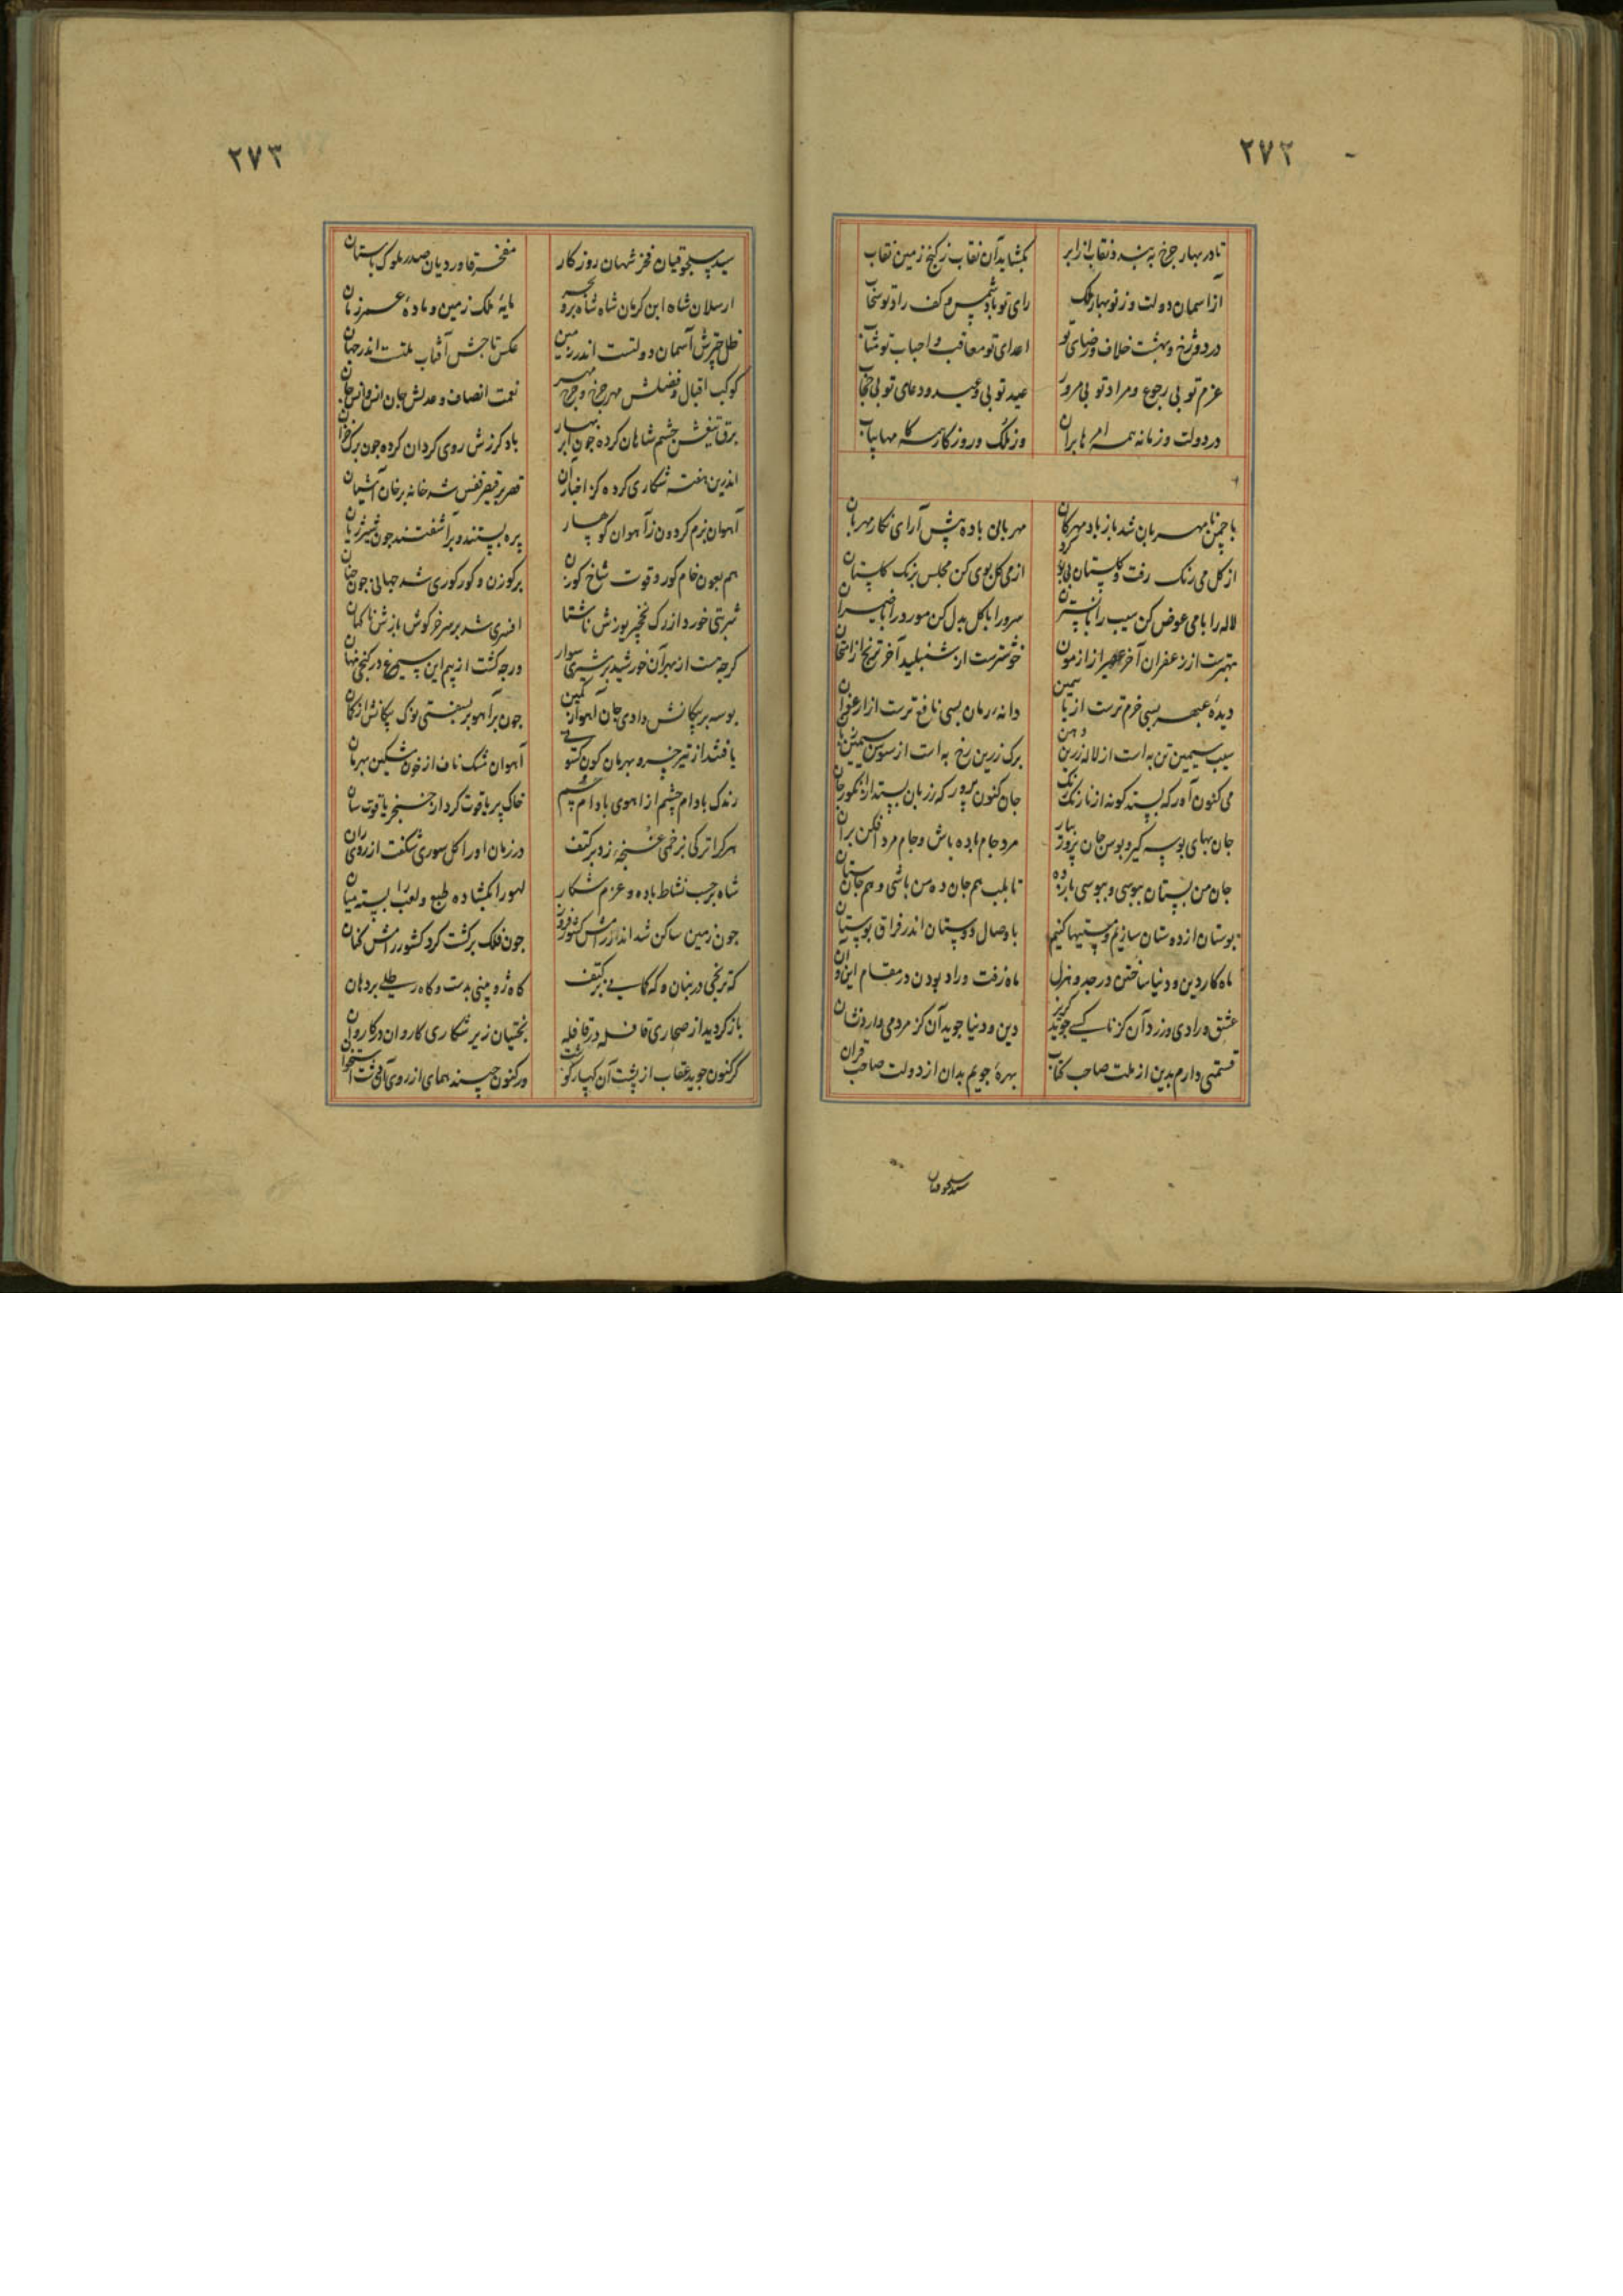 ۲۷۲
تا در بهار چرخ به بندد نقاب از ابر بگشاید آن نقاب ز کنج زمین نقاب
از آسمان دولت وز نوبهار ملک رای تو باد شمس و کف راد تو سحاب
در دوزخ و بهشت خلاف و رضای تو اعدای تو معاقب و احباب تو مثاب
عزم تو بی رجوع و مراد تو بی مرور عید تو بی وعید و دعای تو بی حجاب
در دولت و زمانه همه بران وز ملک و روزگار همه مهابیاب
با چمن نامهربان شد باز باد مهرکان مهربانی باده پیش آرای نکار مهربان
از کل می رنک رفت و کلستان بی بوی کرد از می کل بوی کن مجلس برنک کلستان
لاله را با می عوض کن سیب را با نسترن سرو را با کل بدل کن مورد را با ضیمران
بهترست از زعفران آخر از ازمون خوشترست از شنبلید آخر ترنج از امتحان
دیدۀ عبهر بسی خرم ترست از یاسمین دانه رمان بسی نافع ترست از ارغوان
سیب سیمین تن به است از لاله زرین دهن برک زرین رخ به است از سوسن سیمین
می کنون آور که بستد کونه از نارنک رنک جان کنون پرور که رزبان بستد از انکور جان
جان بهای بوسه گیر و بوس جان پرور بیار مرد جام باده باش و جام مرد افکن بران
جان من بستان ببوسی و ببوسی بازده تا بلب هم جان ده من باشی و هم جان ستان
بوستان از دوستان سازیم و مستیها کنیم با وصال دوستان اندر فراق بوستان
ماه کار دین و دنیا ساختن در جد و هزل ماه زفت و راد بودن در مقام این و آن
عشق و رادی ورزد آن کز ناکسی جوید کریز دین و دنیا جوید آن کز مردمی دارد نشان
قسمتی دارم بدین از ملت صاحب کتاب بهرۀ جویم بدان از دولت صاحب قران
سید سلجوقیان
۲۷۳
سید سلجوقیان فخر شهان روزکار مفخر قاوردیان صدر ملوک باستان
ارسلان شاه ابن کرمان شاه شاه بر و بحر مایۀ ملک زمین و مادۀ عمر زمان
ظل چترش آسمان دولتست اندر زمین عکس تاجش آفتاب ملتست اندر جهان
کوکب اقبال و فضلش مهر چرخ و چرخ مهر نعمت انصاف و عدلش جان انس و انس جان
برق تیغش چشم شاهان کرده چون ابر بهار باد کرزش روی کردان کرده چون برک خزان
اندرین هفته شکاری کرده کز اخبار آن قصر بر قیصر قفس شد خانه بر خان آشیان
آهوان بزم کردون ز آهوان کوهسار پره بستند و بر آشفتند چون شیر ژیان
هم بعون خام کور و قوت شاخ کوزن بر کوزن و کور کوری شد جهانی چون
شربتی خورد از رک نخچیر یوزش ناشتا افسری شد بر سر خرکوش بازش ناکهان
کرچه جست از بهر آن خورشید بر شیری سوار ورچه کشت از بیم این سیمرغ در کنجی نهان
بوسه بر پیکانش دادی جان آهو از کمین چون بر آهو بر بسفتی نوک پیکانش از کمان
یافتند از تیر خسرو بهرمان کون کسوتی آهوان مشک ناف از خون مشکین بهرمان
رندک بادام چشم از اهوی بادام چشم خاک پر یاقوت کرد از خنجر یاقوت سان
هر کرا ترکی بزخمی غنچه زد بر کتف در زمان او را کل سوری شکفت از روی ران
شاه بر حسب نشاط باده و عزم شکار لهو را بکشاده طبع و لعب را بسته میان
چون زمین ساکن شد اندر رامش کشور فروز چون فلک برکشت کرد کشور رامش کنان
که ترنجی در بنان و که کمانی بر کتف کاه ژوپینی بدست و کاه رطلی بر دهان
باز کردید از صحاری قافله در قافله بختیان زیر شکاری کاروان در کاروان
کر کنون جوید عقاب از پشت آن کهسار کوشت ور کنون چیند همای از روی آن دشت استخوان